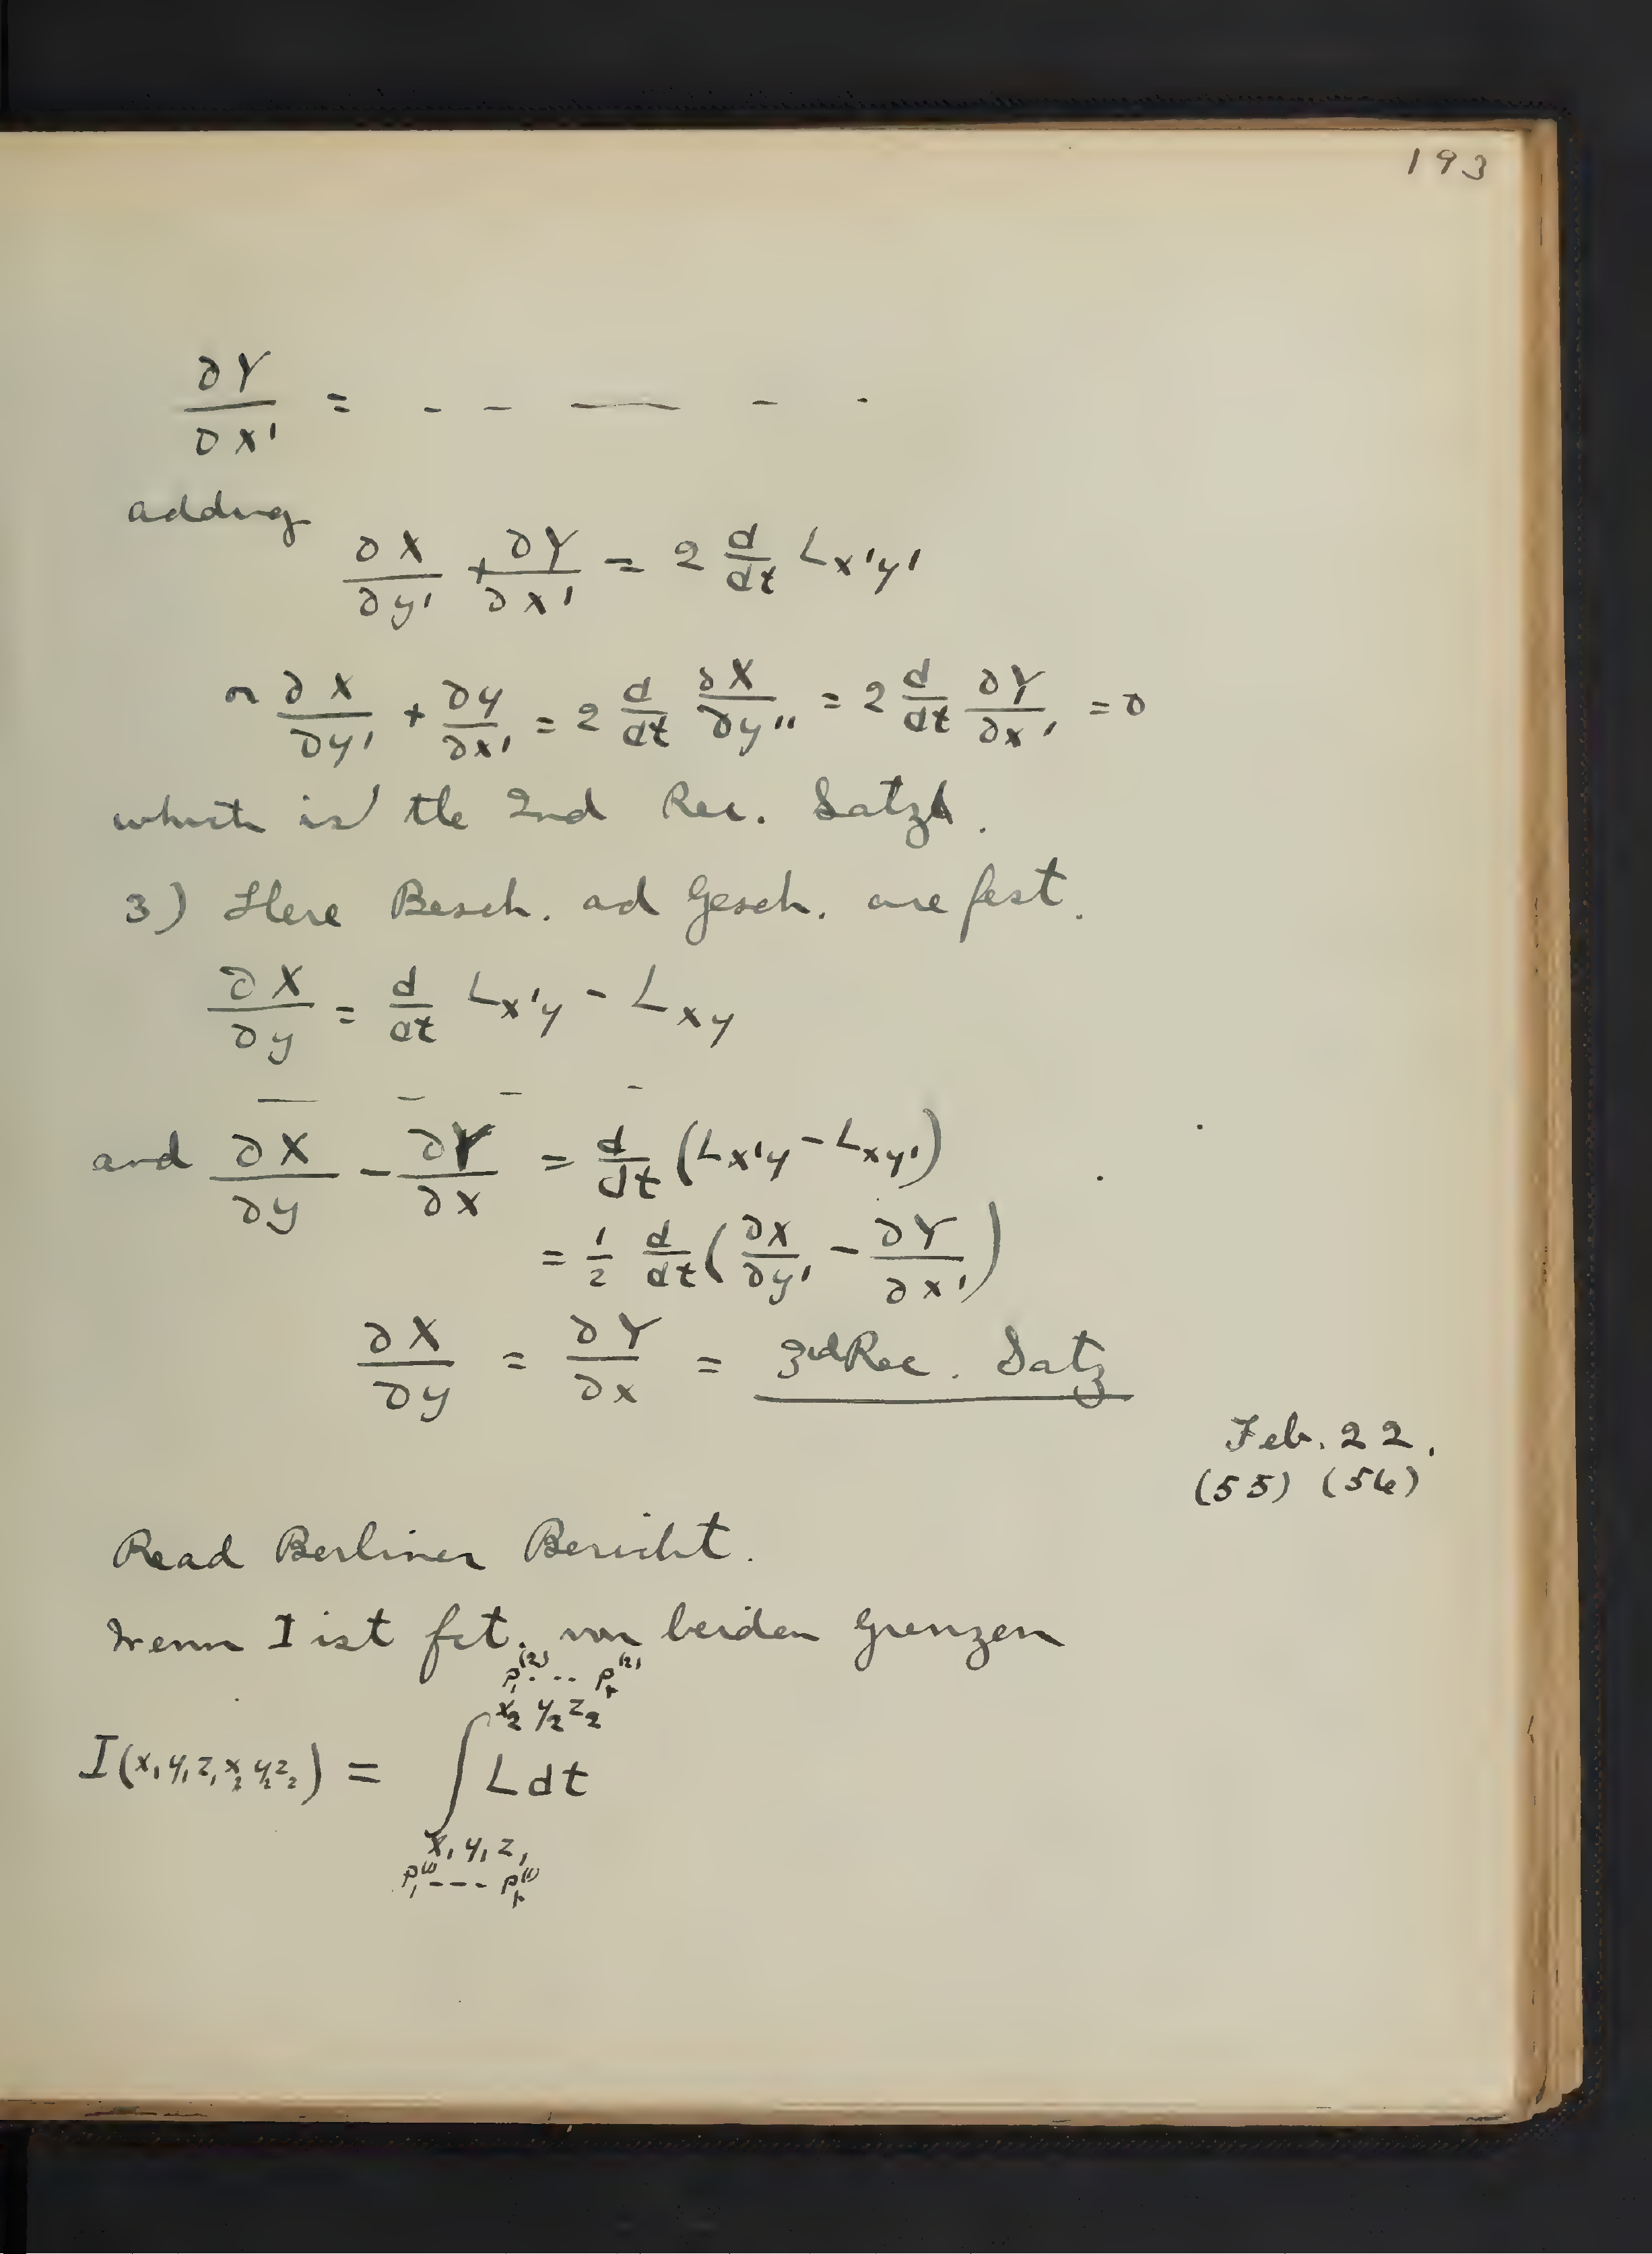 193
∂Y/∂x' = - - — - -
adding
∂X/∂y' + ∂Y/∂x' = 2 d/dt L_{x'y'}
or ∂X/∂y' + ∂y/∂x' = 2 d/dt ∂X/∂y'' = 2 d/dt ∂Y/∂x' = 0
which is the 2nd Rec. Satz.
3) Here Besch. ad Gesch. are fest.
∂X/∂y = d/dt L_{x'y} - L_{xy}
— - - -
and ∂X/∂y - ∂Y/∂x = d/dt (L_{x'y} - L_{xy'})
= 1/2 d/dt (∂X/∂y' - ∂Y/∂x')
∂X/∂y = ∂Y/∂x = 3rd Rec. Satz
Feb. 22.
(55) (56)
Read Berliner Bericht.
Wenn I ist fct. von beiden Grenzen
p_1^{(2)} ... p_r^{(2)}
x_2 y_2 z_2
I(x_1 y_1 z_1 x_2 y_2 z_2) = ∫ L dt
x_1 y_1 z_1
p_1^{(1)} --- p_r^{(1)}